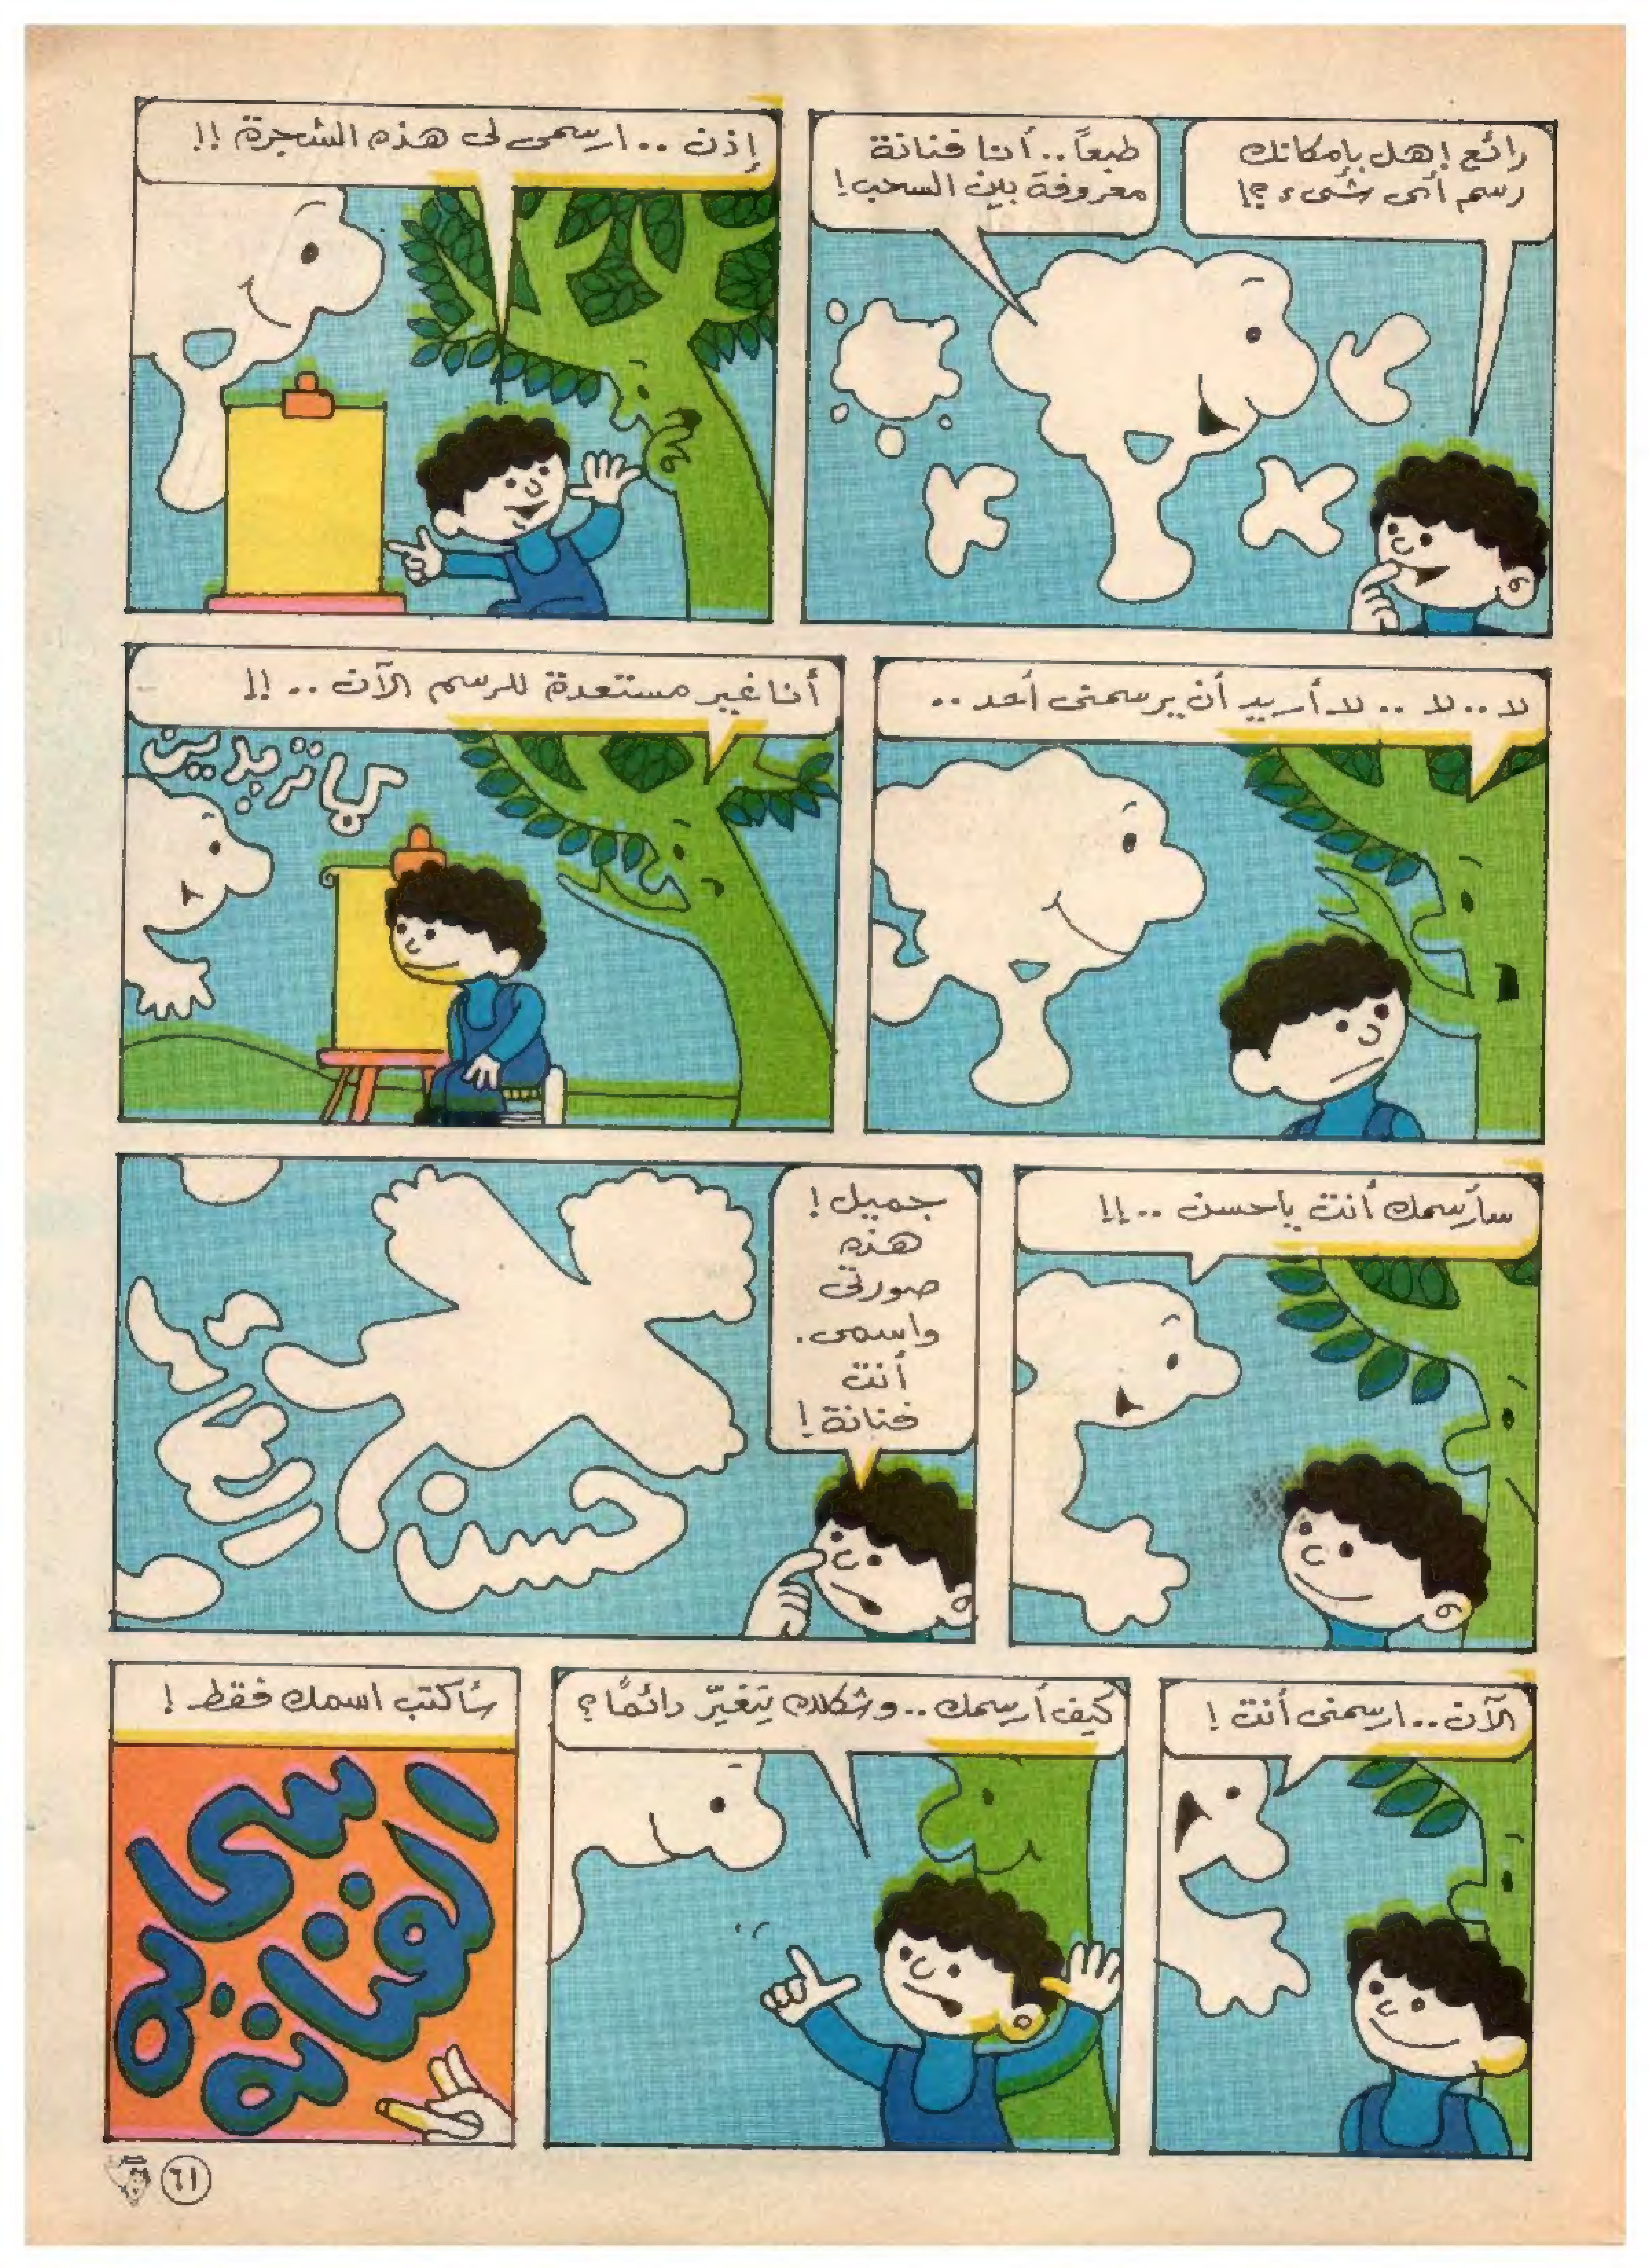 رائع! هل بإمكانك
رسم أى شىء ؟!
طبعاً.. أنا فنانة
معروفة بين السحب!
إذن .. ارسمى لى هذه الشجرة !!
لا.. لا .. لا أريد أن يرسمنى أحد ..
أنا غير مستعدة للرسم الآن .. !!
كما تريدين
سأرسمك أنت ياحسن ..!!
جميل !
هذه
صورتى
واسمى.
أنت
فنانة !
حسن
الآن.. ارسمنى أنت !
كيف أرسمك.. وشكلك يتغيّر دائمًا؟
سأكتب اسمك فقط !
الفنانة
٦١